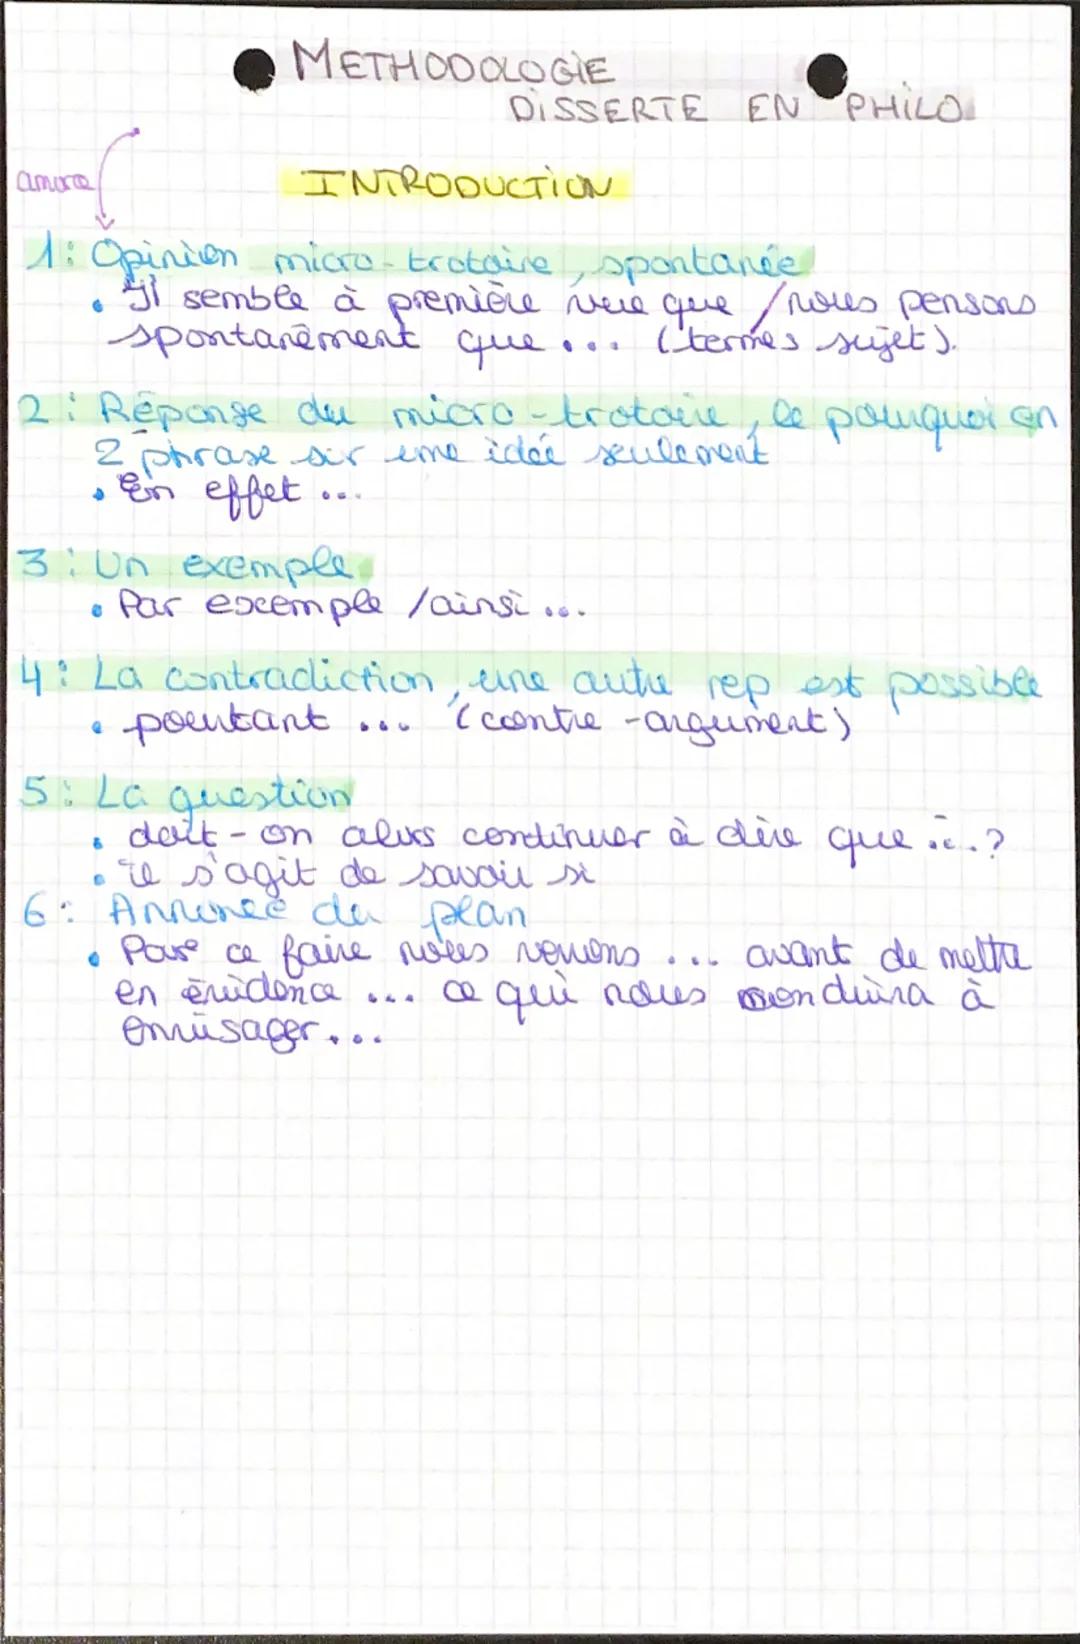 METHODOLOGIE
DISSERTE EN PHILO
INTRODUCTION
1: Opinion micro-trotoire, spontanée
• Il semble à première vue que / nous pensons
spontanément que ... (termes sujet).
2: Réponse du micro-trotoire, le pourquoi en
2 phrase sur une idée seulement
• En effet ...
3: Un exemple
• Par exemple / ainsi ...
4: La contradiction, une autre rep est possible
• pourtant ... (contre-argument)
5: La question
• doit-on alors continuer à dire que ...?
• il s'agit de savoir si
6: Annonce du plan
• Pour ce faire nous verrons ... avant de mettre
en évidence ... ce qui nous conduira à
envisager...